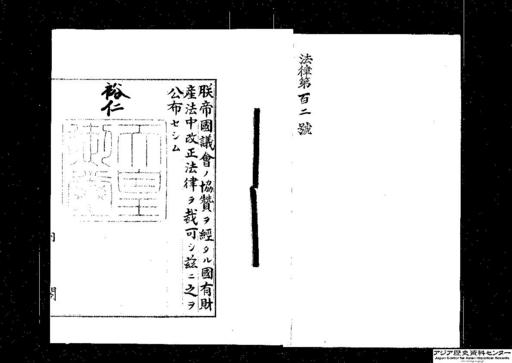 法律第百二號
朕帝國議會ノ協贊ヲ經タル國有財
産法中改正法律ヲ裁可シ茲ニ之ヲ
公布セシム
裕仁
天皇御璽
内閣
アジア歴史資料センター
Japan Center for Asian Historical Records